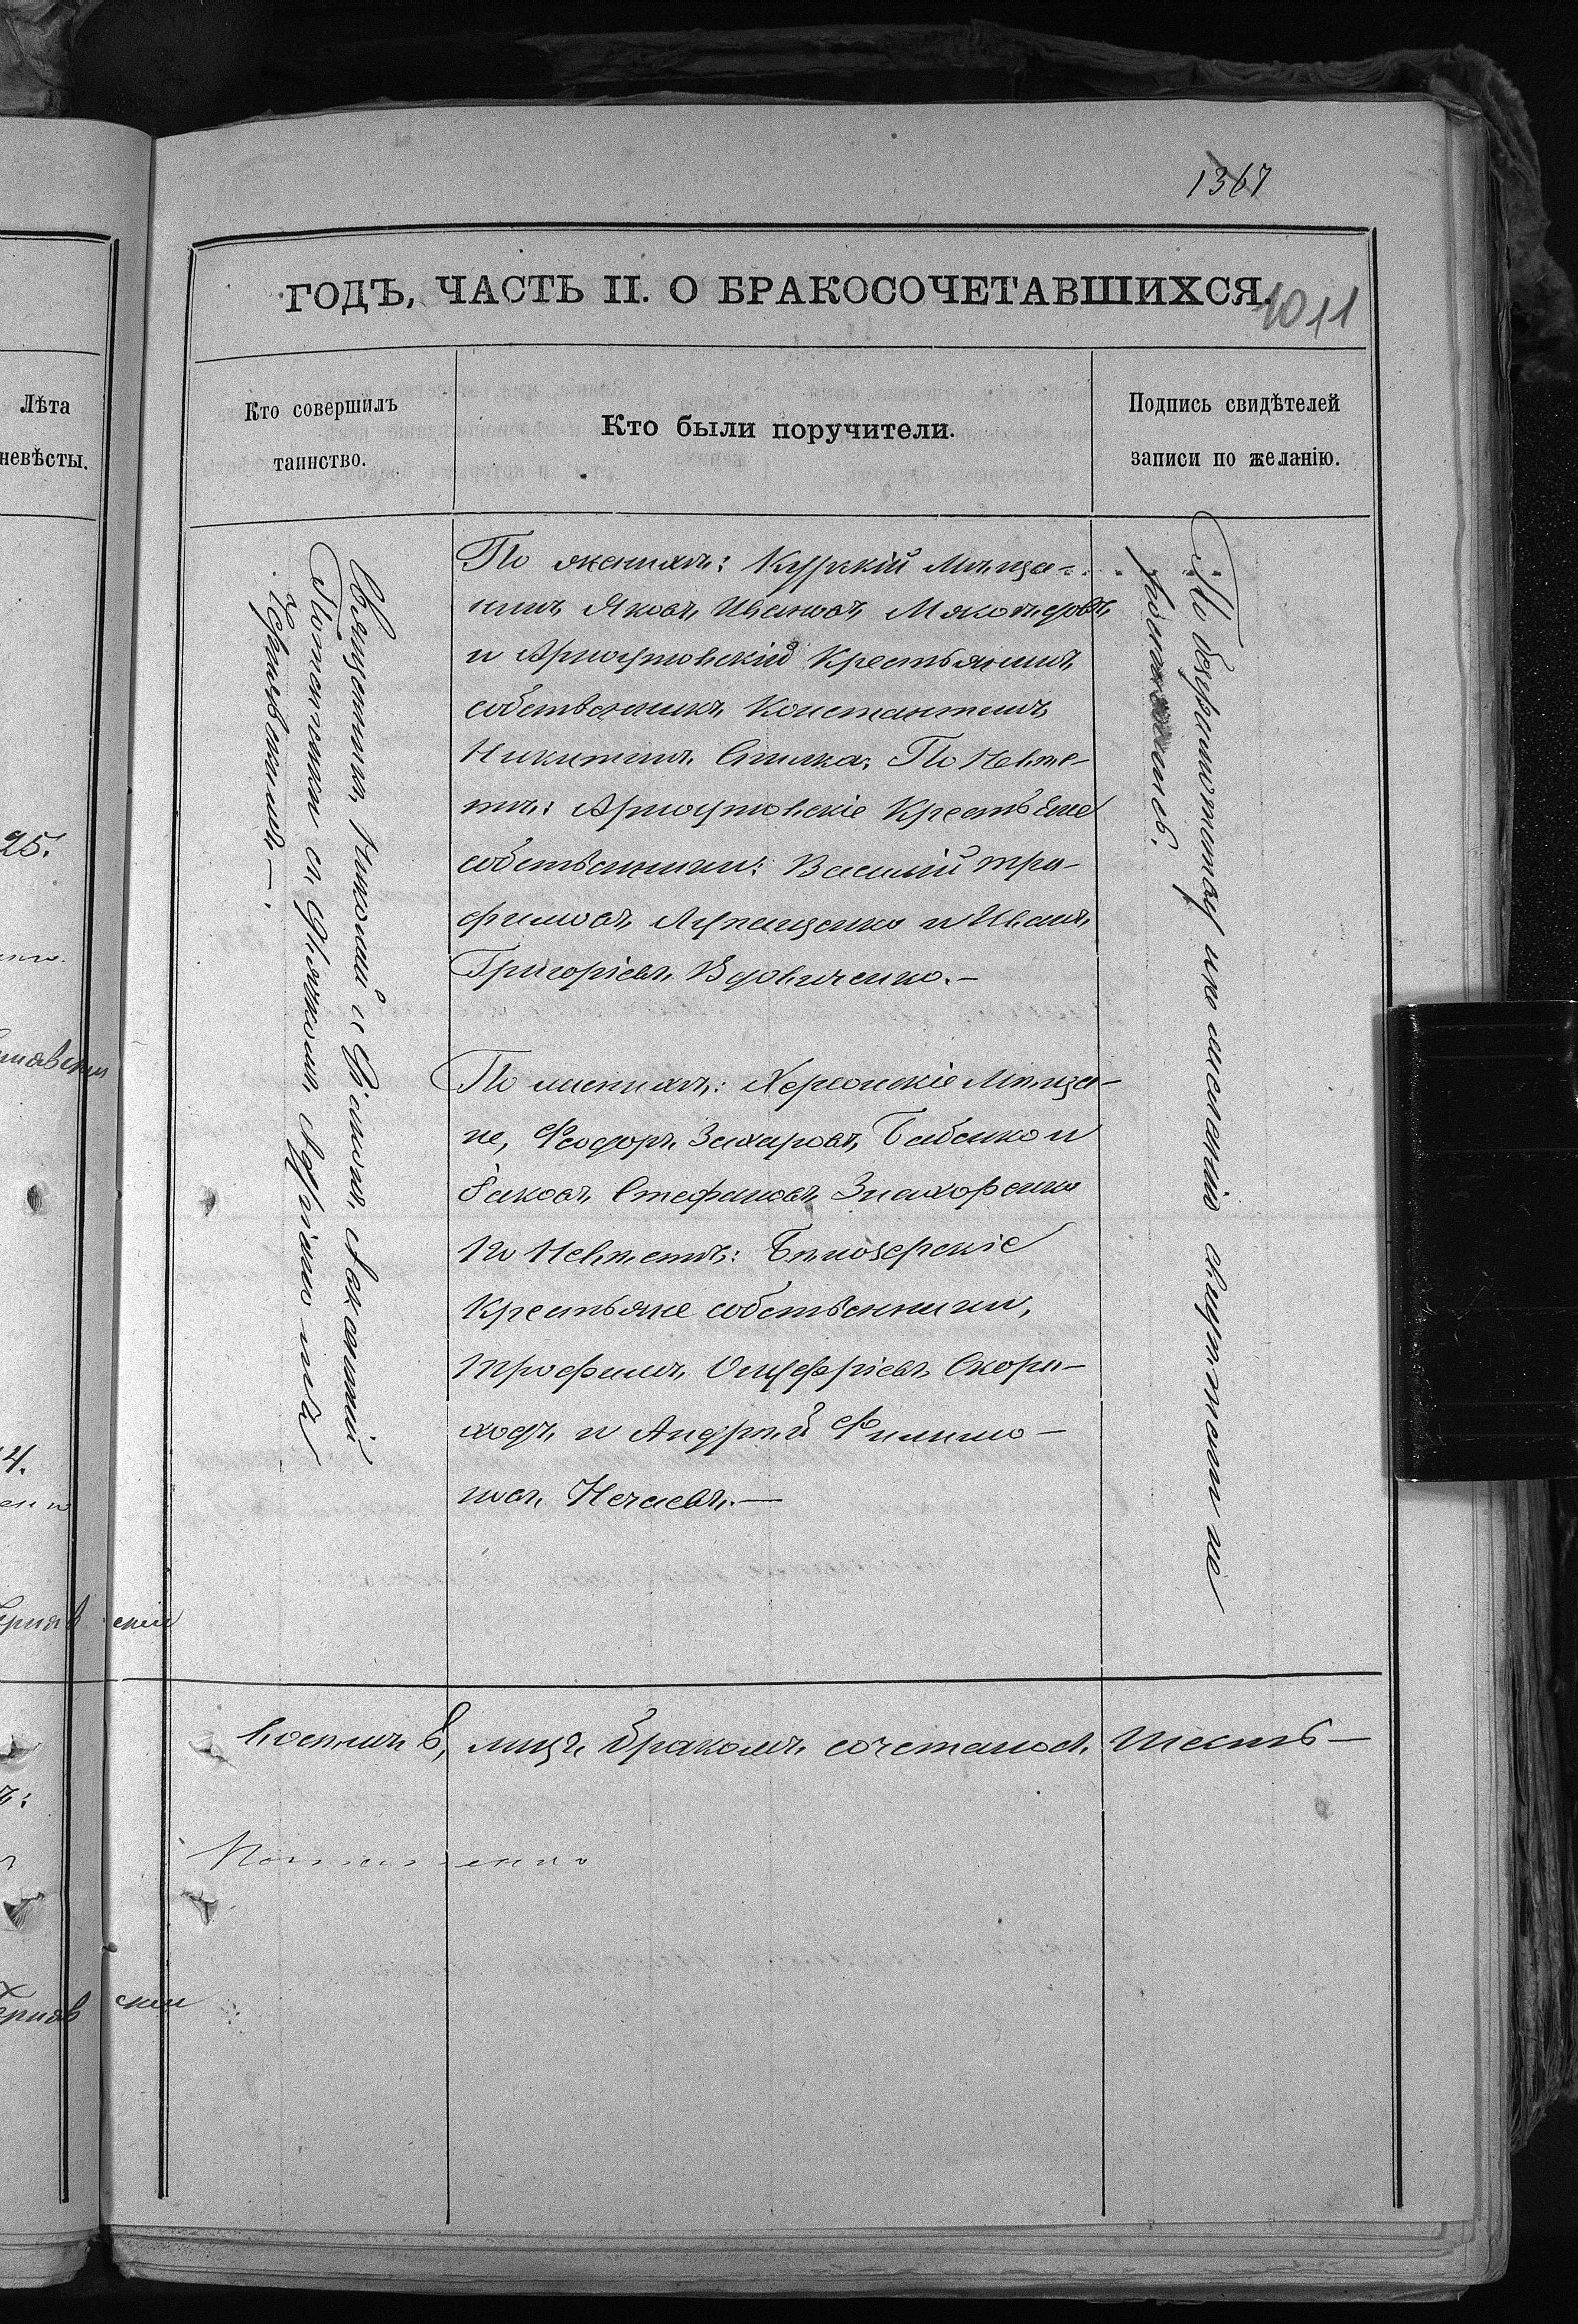 1367
ГОДЪ, ЧАСТЬ II. О БРАКОСОЧЕТАВШИХСЯ.
1011
Лѣта
невѣсты.
Кто совершилъ
таинство.
Кто были поручители.
Подпись свидѣтелей
записи по желанію.
25.
Священникъ Николай и Діаконъ
съ Дьячкомъ
Чернявскимъ.—
По жениху: Курскій Мѣща-
нинъ Яковъ Ивановъ
и Арнаутовскій Крестьянинъ
собственникъ Константинъ
Никитинъ Спичка; По Невѣс-
тѣ: Арнаутовскіе Крестьяне
собственники: Василій Тро-
фимовъ Лупащенко и Иванъ
Григоріевъ Вдовиченко.—
По жениху: Херсонскіе Мѣща-
не, Феодоръ Захаровъ Бабенко и
Іаковъ Стефановъ Знахоренко
По Невѣстѣ: Бѣлозерскіе
Крестьяне собственники,
Трофимъ Онуфріевъ Скоро-
ходъ и Андрей Филимо-
новъ Нечаевъ.—
По безграмотству и нежеланію
4.
скій
лицъ бракомъ сочеталось шесть—
скій